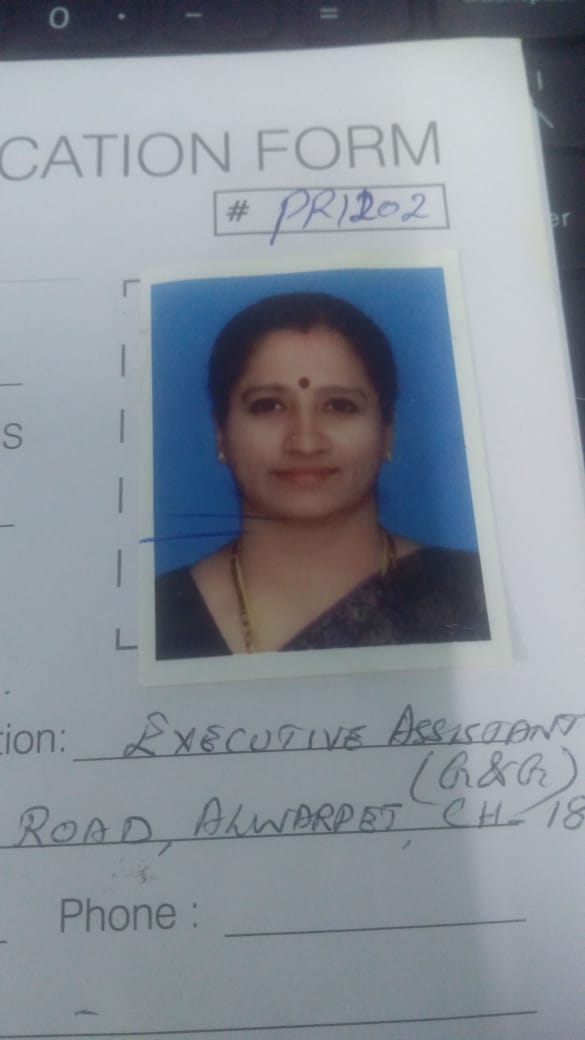 CATION FORM
# PR1202
S
tion: EXECUTIVE ASSISTANT
(G&G)
ROAD, ALWARPET, CH-18
Phone :